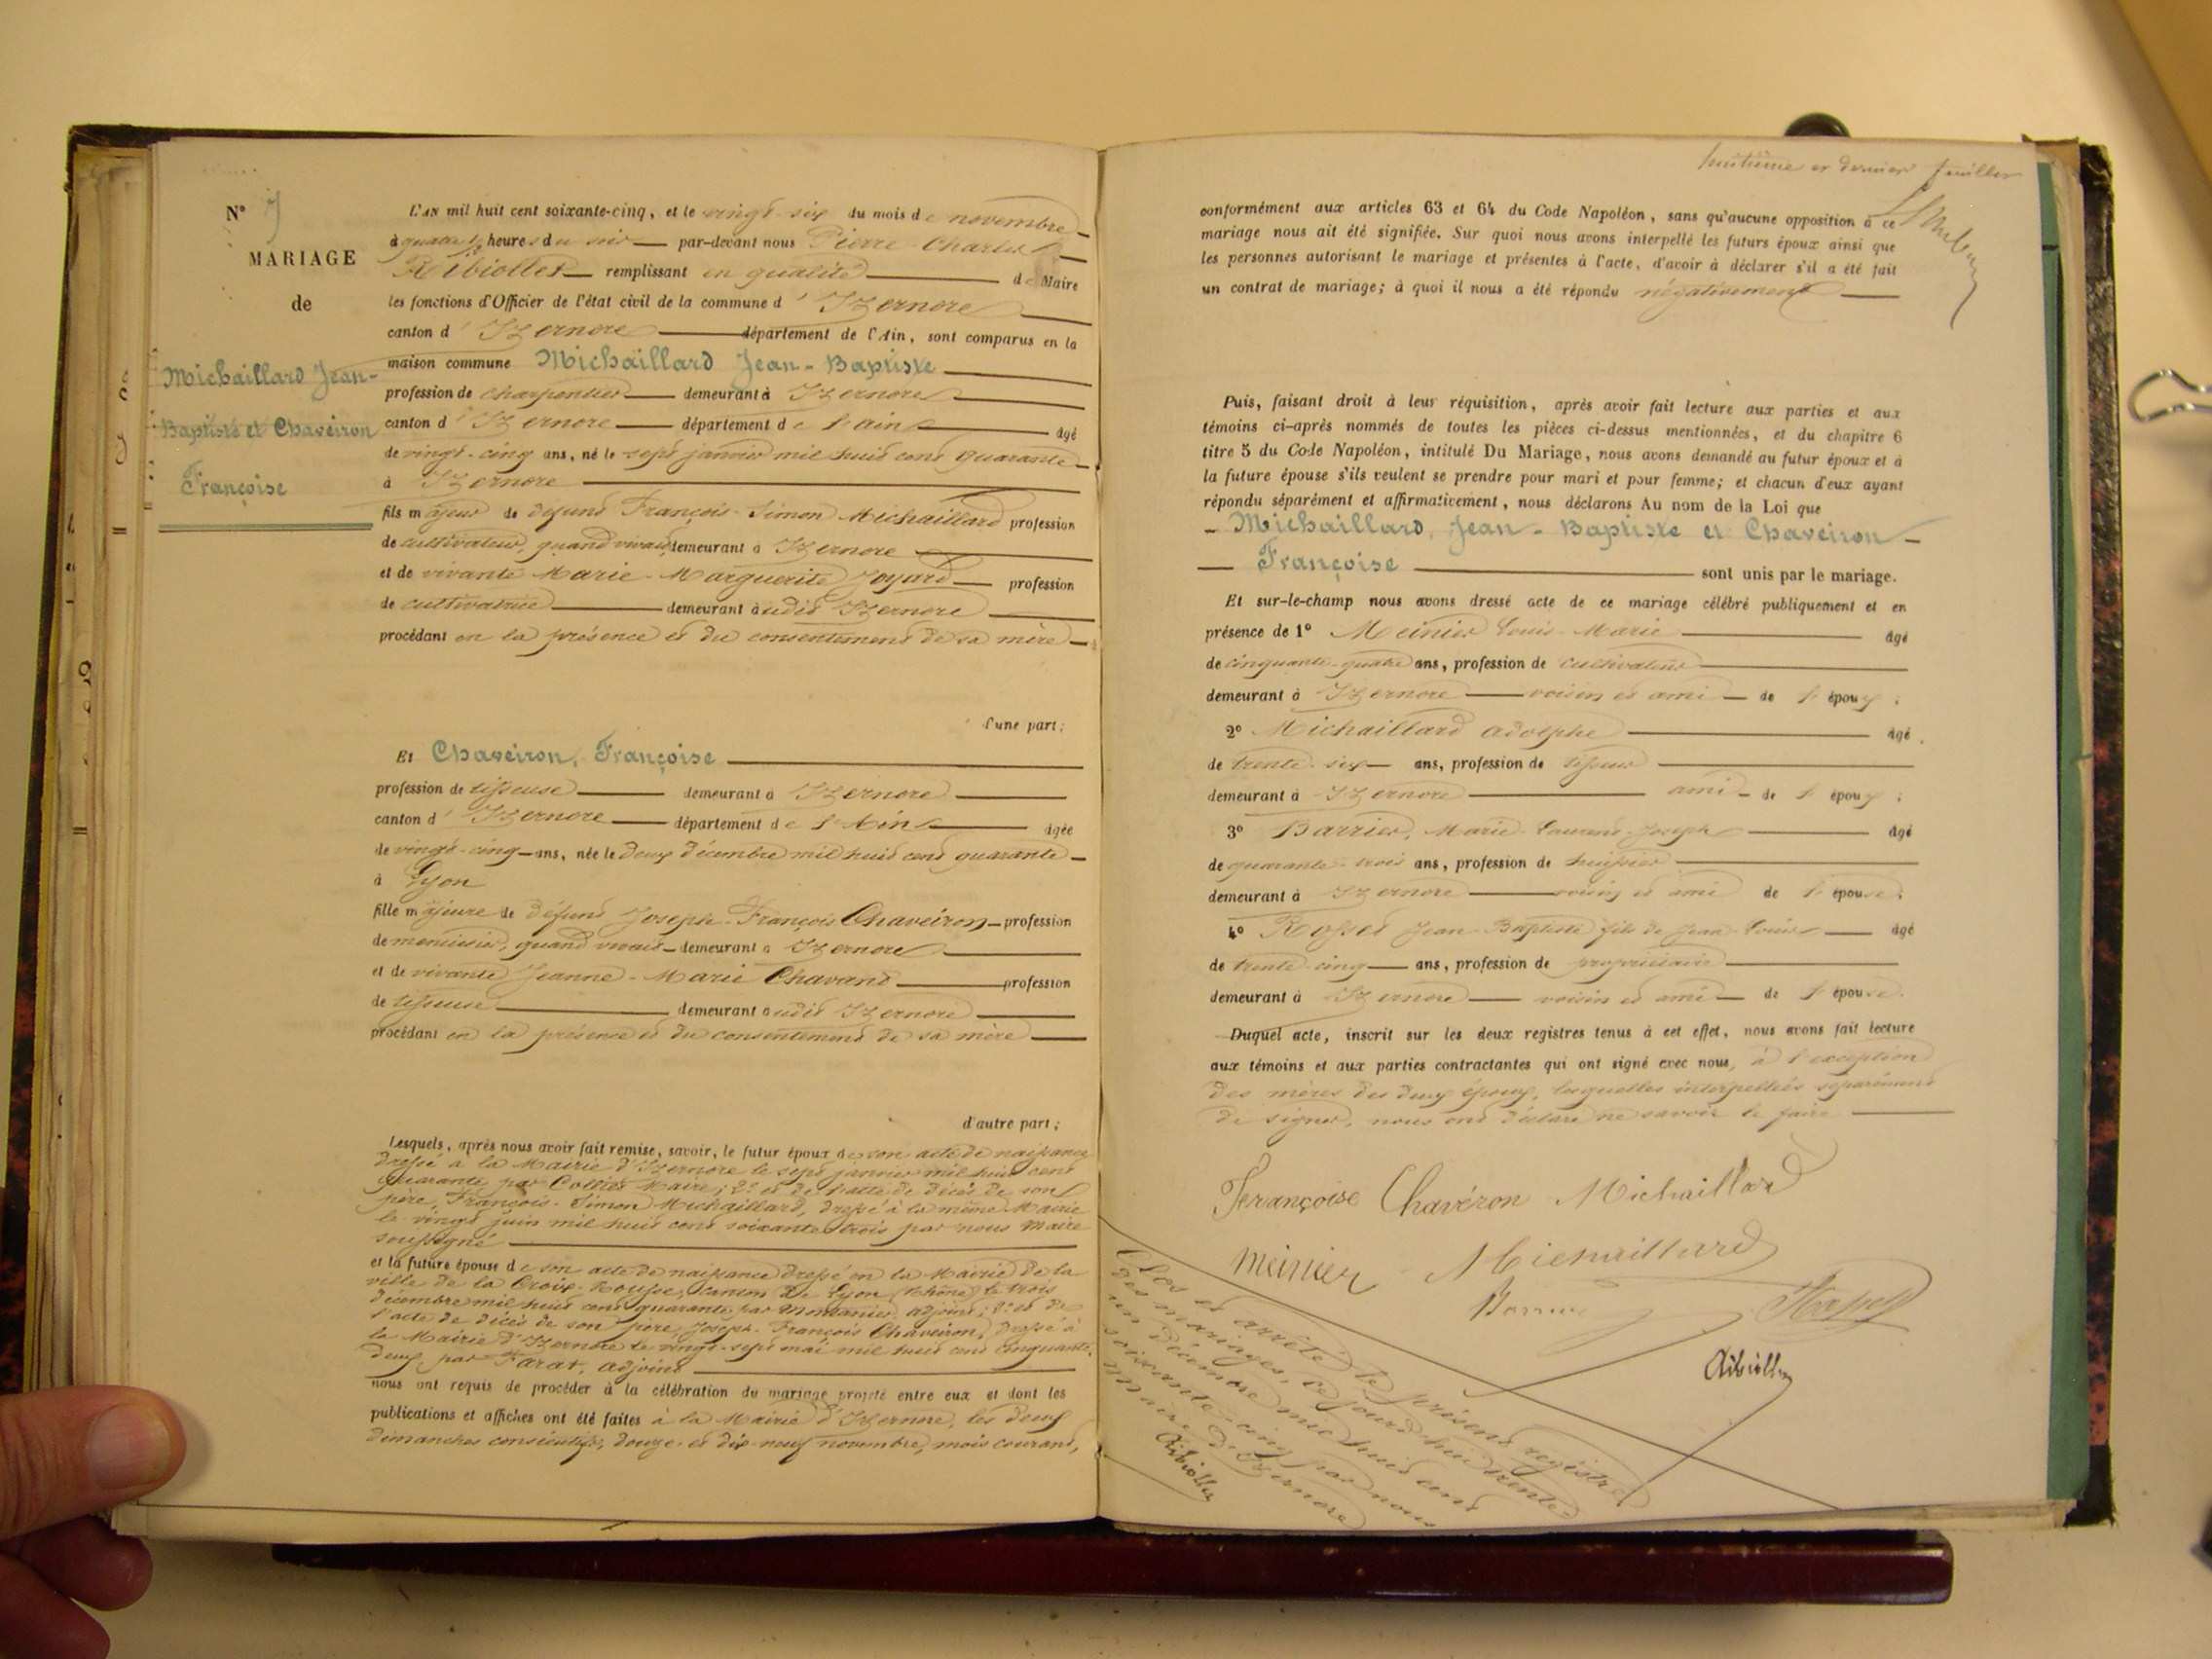 N° 7
MARIAGE
de
Michaillard Jean-
Baptiste et Chaveiron
Françoise
L'AN mil huit cent soixante-cinq, et le vingt-six du mois de novembre
à quatre ½ heures du soir par-devant nous Pierre Charles
Ribiollet remplissant en qualité de Maire
les fonctions d'Officier de l'état civil de la commune d'Izernore
canton d'Izernore département de l'Ain, sont comparus en la
maison commune Michaillard Jean-Baptiste
profession de charpentier demeurant à Izernore
canton d'Izernore département de l'ain âgé
de vingt-cinq ans, né le sept janvier mil huit cent quarante
à Izernore
fils majeur de défunt François-Simon Michaillard profession
de cultivateur, quand vivait demeurant à Izernore
et de vivante Marie-Marguerite Joyard profession
de cultivatrice demeurant à udit Izernore
procédant en la présence et du consentement de sa mère
d'une part;
Et Chaveiron, Françoise
profession de tisseuse demeurant à Izernore
canton d'Izernore département de l'Ain âgée
de vingt-cinq ans, née le deux décembre mil huit cent quarante
à Lyon
fille majeure de défunt Joseph-François Chaveiron profession
de menuisier, quand vivait demeurant à Izernore
et de vivante Jeanne-Marie Chavand profession
de tisseuse demeurant audit Izernore
procédant en la présence et du consentement de sa mère
d'autre part;
Lesquels, après nous avoir fait remise, savoir, le futur époux de son acte de naissance
dressé à la Mairie d'Izernore le sept janvier mil huit cent
quarante par Collier Maire; 2° et de l'acte de décès de son
père, François-Simon Michaillard, dressé à la même Mairie
le vingt juin mil huit cent soixante-trois par nous Maire
soussigné
et la future épouse de son acte de naissance dressé en la Mairie de la
ville de la Croix-Rousse, canton de Lyon (Rhône) le trois
décembre mil huit cent quarante, par adjoint; 2° et de
l'acte de décès de son père, Joseph-François Chaveiron, dressé à
la Mairie d'Izernore le vingt-sept mai mil huit cent cinquante-
deux par Tarat, adjoint
nous ont requis de procéder à la célébration du mariage projeté entre eux et dont les
publications et affiches ont été faites à la Mairie d'Izernore, les deux
dimanches consécutifs, douze et dix-neuf novembre, mois courant,
huitième et dernier feuillet
conformément aux articles 63 et 64 du Code Napoléon, sans qu'aucune opposition à ce
mariage nous ait été signifiée. Sur quoi nous avons interpellé les futurs époux ainsi que
les personnes autorisant le mariage et présentes à l'acte, d'avoir à déclarer s'il a été fait
un contrat de mariage; à quoi il nous a été répondu négativement
Puis, faisant droit à leur réquisition, après avoir fait lecture aux parties et aux
témoins ci-après nommés de toutes les pièces ci-dessus mentionnées, et du chapitre 6
titre 5 du Code Napoléon, intitulé Du Mariage, nous avons demandé au futur époux et à
la future épouse s'ils veulent se prendre pour mari et pour femme; et chacun d'eux ayant
répondu séparément et affirmativement, nous déclarons Au nom de la Loi que
Michaillard, Jean-Baptiste et Chaveiron
Françoise sont unis par le mariage.
Et sur-le-champ nous avons dressé acte de ce mariage célébré publiquement et en
présence de 1° Meinier Louis-Marie âgé
de cinquante-quatre ans, profession de cultivateur
demeurant à Izernore voisin et ami de l'époux;
2° Michaillard adolphe âgé
de trente-six ans, profession de tisseur
demeurant à Izernore ami de l'époux;
3° Barrier, Marie-Laurent-Joseph âgé
de quarante-trois ans, profession de huissier
demeurant à Izernore voisin et ami de l'épouse;
4° Rosset Jean-Baptiste fils de Jean-Louis âgé
de trente-cinq ans, profession de propriétaire
demeurant à Izernore voisin et ami de l'épouse.
Duquel acte, inscrit sur les deux registres tenus à cet effet, nous avons fait lecture
aux témoins et aux parties contractantes qui ont signé avec nous, à l'exception
des mères des deux époux, lesquelles interpellées séparément
de signer, nous ont déclaré ne savoir le faire
Françoise Chavéron Michaillard
Meinier Michaillard
Ribiollet
Clos et arrêté le présent registre
des mariages, ce jourd'hui trente
un décembre mil huit cent
soixante-cinq par nous
Maire d'Izernore
Ribiollet